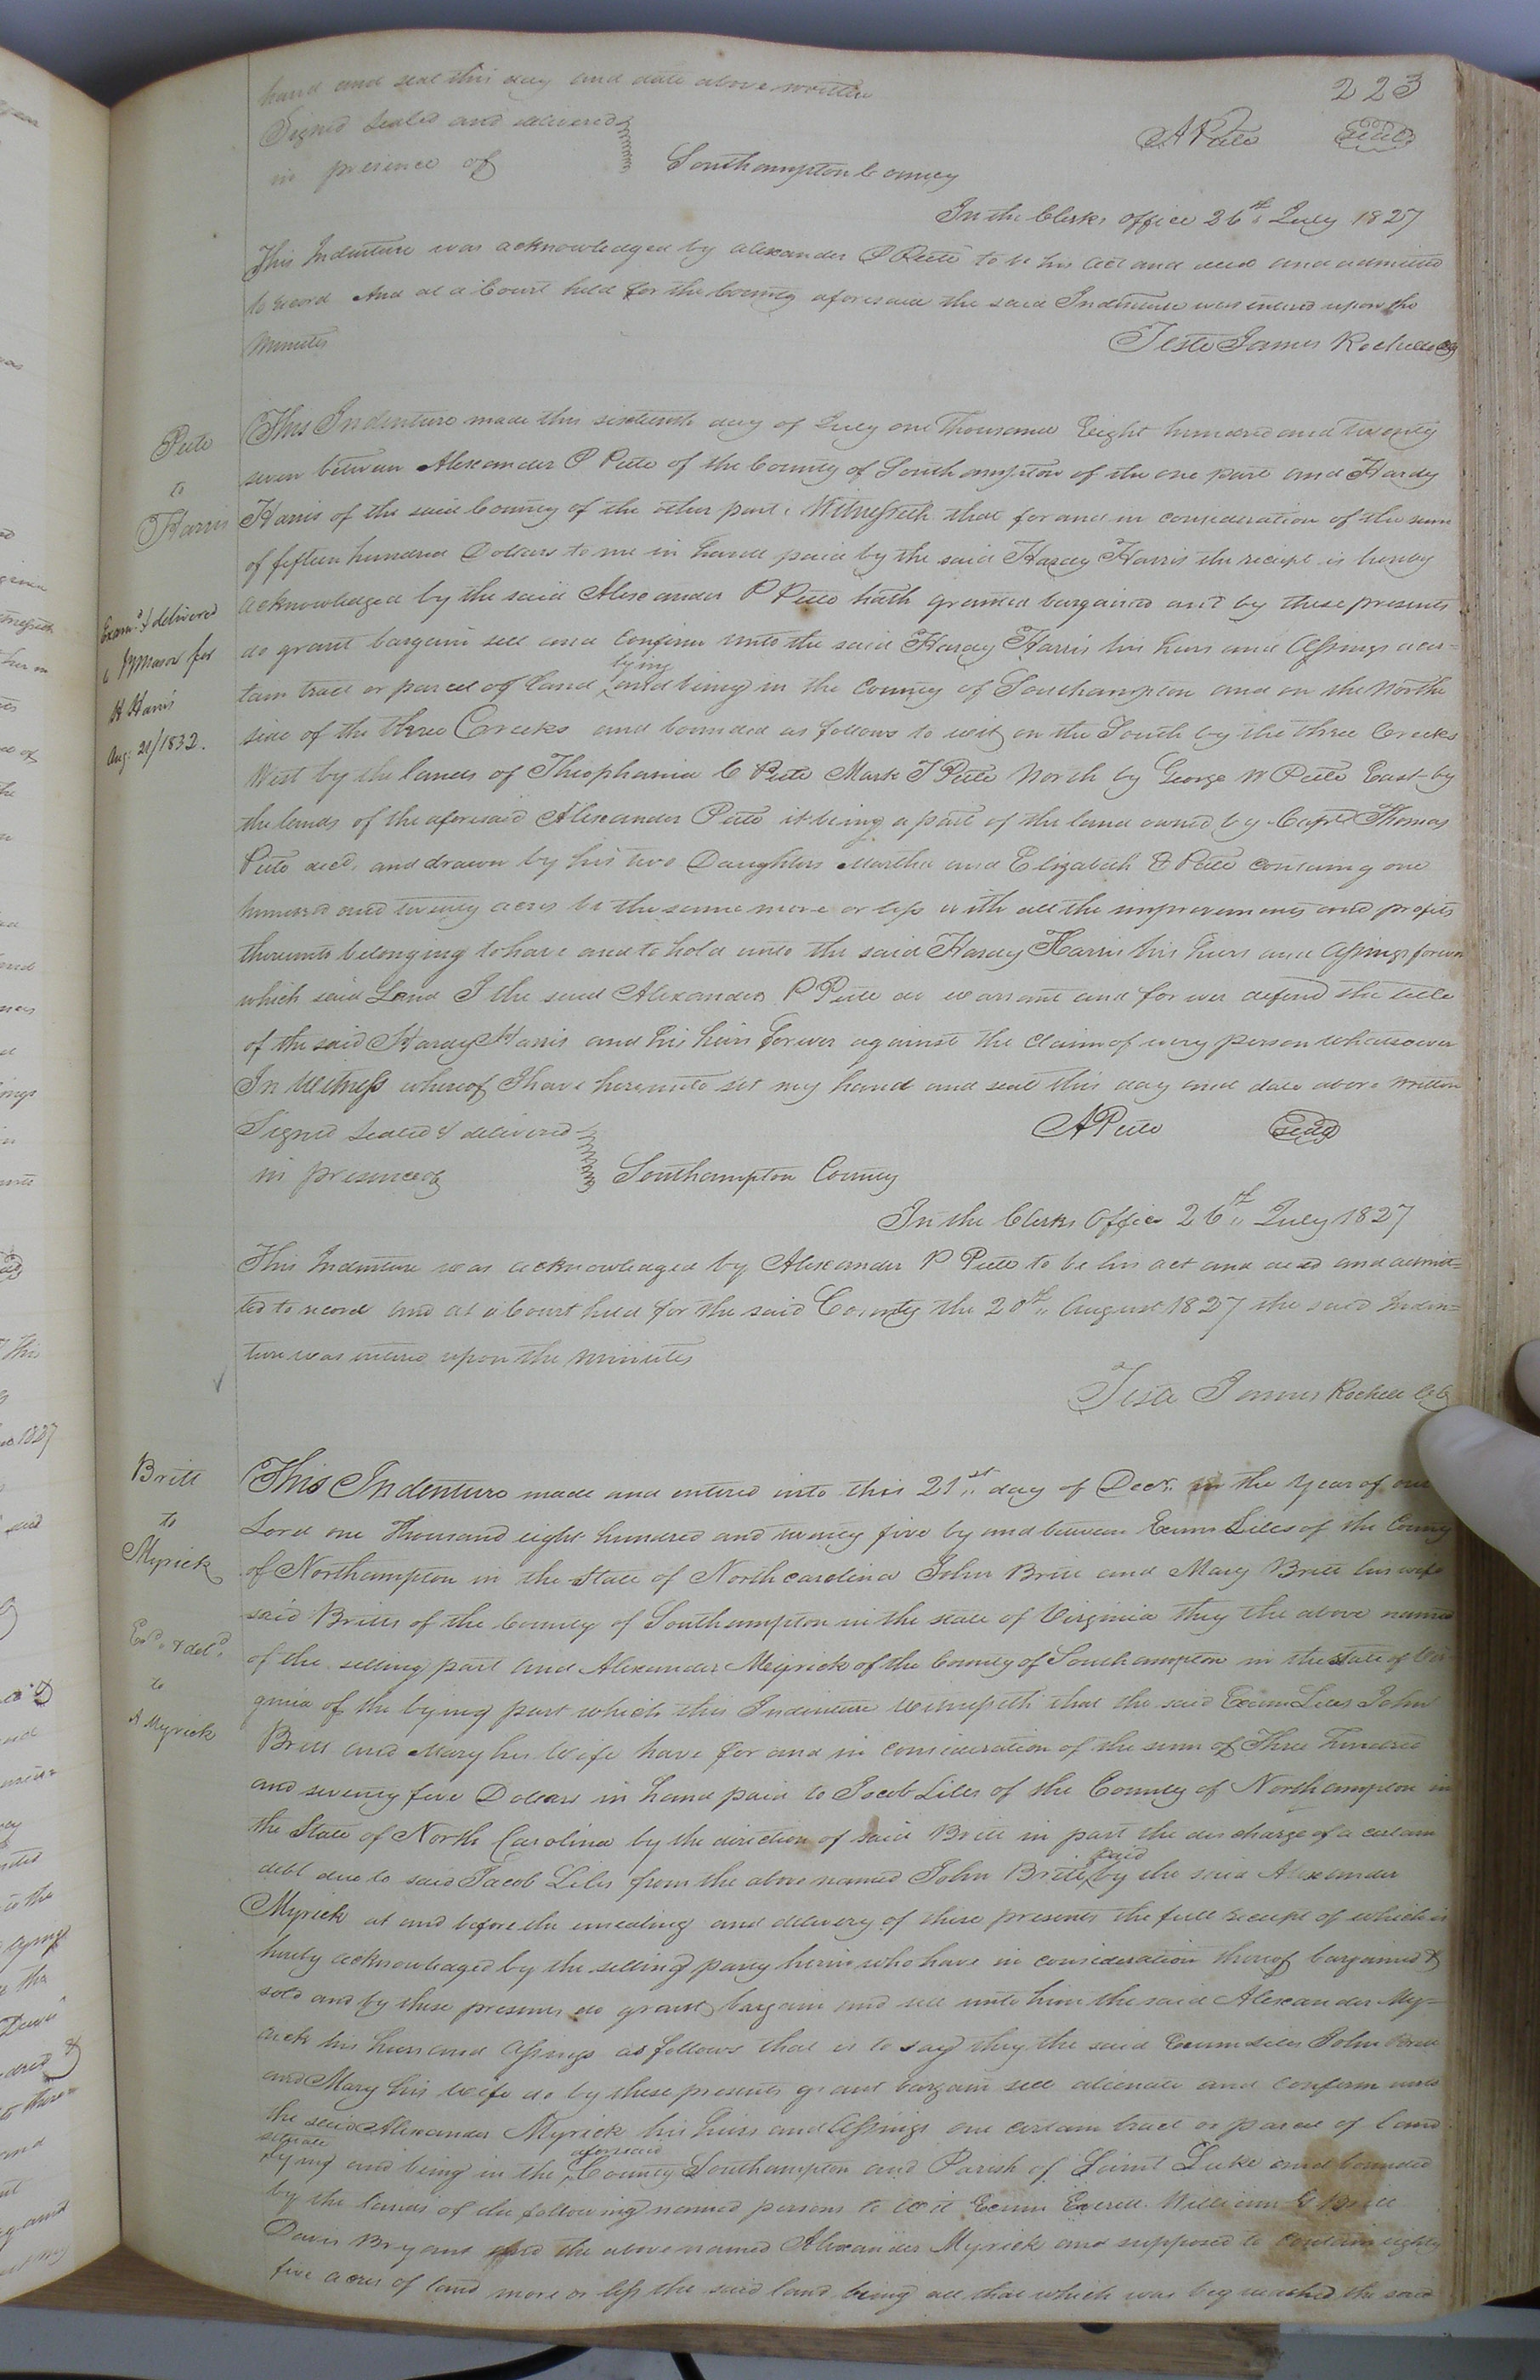 223
hand and seal this day and date above written
Signed Sealed and delivered
in presence of
A Pete
Seal
Southampton County
In the Clerks office 26th July 1827
This Indenture was acknowledged by Alexander P Pete to be his act and deed and admitted
to record And at a Court held for the County aforesaid the said Indenture was entered upon the
Minutes
Teste James Rochelle CC
Pete
to
Harris
Exam.d & delivered
for
H Harris
Aug: 21/1832.
This Indenture made this sixteenth day of July one Thousand Eight hundred and twenty
seven between Alexander P Pete of the County of Southampton of the one part and Hardy
Harris of the said County of the other part, Witnesseth that for and in consideration of the sum
of fifteen hundred Dollars to me in hand paid by the said Hardy Harris the receipt is hereby
acknowledged by the said Alexander P Pete hath granted bargained and by these presents
do grant bargain sell and confirm unto the said Hardy Harris his heirs and Assings a cer=
tain tract or parcel of land lying and being in the County of Southampton and on the North
side of the three Creeks and bounded as follows to wit, on the South by the three Creeks
West by the lands of Theophania C Pete Mark J Pete North by George W Pete East by
the lands of the aforesaid Alexander Pete it being a part of the land owned by Capt Thomas
Pete decd. and drawn by his two Daughters Martha and Elizabeth Pete containg one
hundred and twenty acres be the same more or less with all the improvements and profits
thereunto belonging to have and to hold unto the said Hardy Harris his heirs and Assings forever
which said Land I the said Alexander P Pete do warrant and for ever defend the title
of the said Hardy Harris and his heirs forever against the claim of every person whatsoever
In Witness whereof I have hereunto set my hand and seal this day and date above written
Signed Sealed & delivered
in presence of
A Pete
Seal
Southampton County
In the Clerks Office 26th July 1827
This Indenture was acknowledged by Alexander P Pete to be his act and deed and admit=
ted to record and at a Court held for the said County the 20th August 1827 the said Inden=
ture was entered upon the minutes
Teste James Rochelle CC
Britt
to
Myrick
Ex.d & del.d
to
A Myrick
This Indenture made and entered into this 21st day of Decr. in the year of our
Lord one thousand eight hundred and twenty five by and between Exum Liles of the County
of Northampton in the State of North carolina John Britt and Mary Britt his wife
said Britts of the County of Southampton in the state of Virginia they the above named
of the selling part and Alexander Myrick of the County of Southampton in the State of Vir
ginia of the bying part which this Indenture witnesseth that the said Exum Liles John
Britt and Mary his Wife have for and in consideration of the sum of Three Hundred
and seventy five Dollars in hand paid to Jacob Liles of the County of Northampton in
the State of North Carolina by the direction of said Britt in part the discharge of a certain
debt due to said Jacob Liles from the above named John Britt, paid by the said Alexander
Myrick at and before the ensealing and delivery of these presents the full receipt of which is
hereby acknowledged by the selling party herein who have in consideration thereof bargained &
sold and by these presents do grant bargain and sell unto him the said Alexander My=
rick his heirs and Assings as follows that is to say they the said Exum Liles John Britt
and Mary his wife do by these presents grant bargain sell alienate and confirm unto
the said Alexander Myrick his heirs and Assings one certain tract or parcel of land
situate lying and being in the aforesaid County Southampton and Parish of Saint Luke and bounded
by the lands of the following named persons to wit Exum Everett William Britt
Davis Bryant and the above named Alexander Myrick and supposed to contain eighty
five acres of land more or less the said land being all that which was bequeathed the said